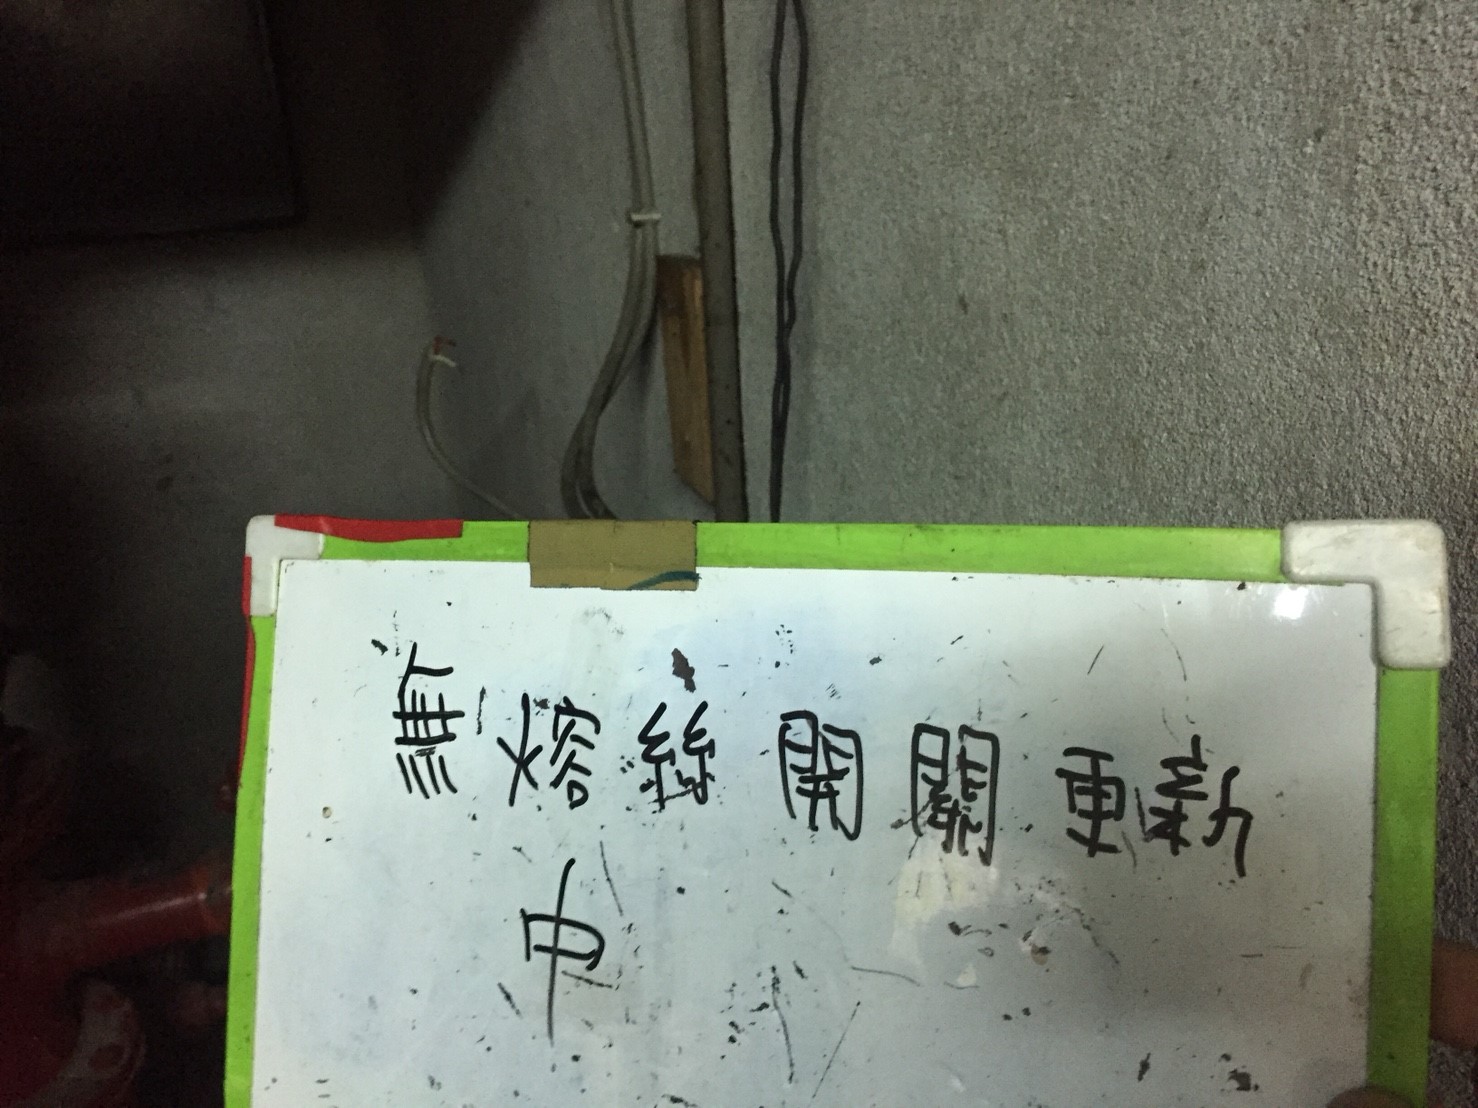 無熔絲開關更新
中